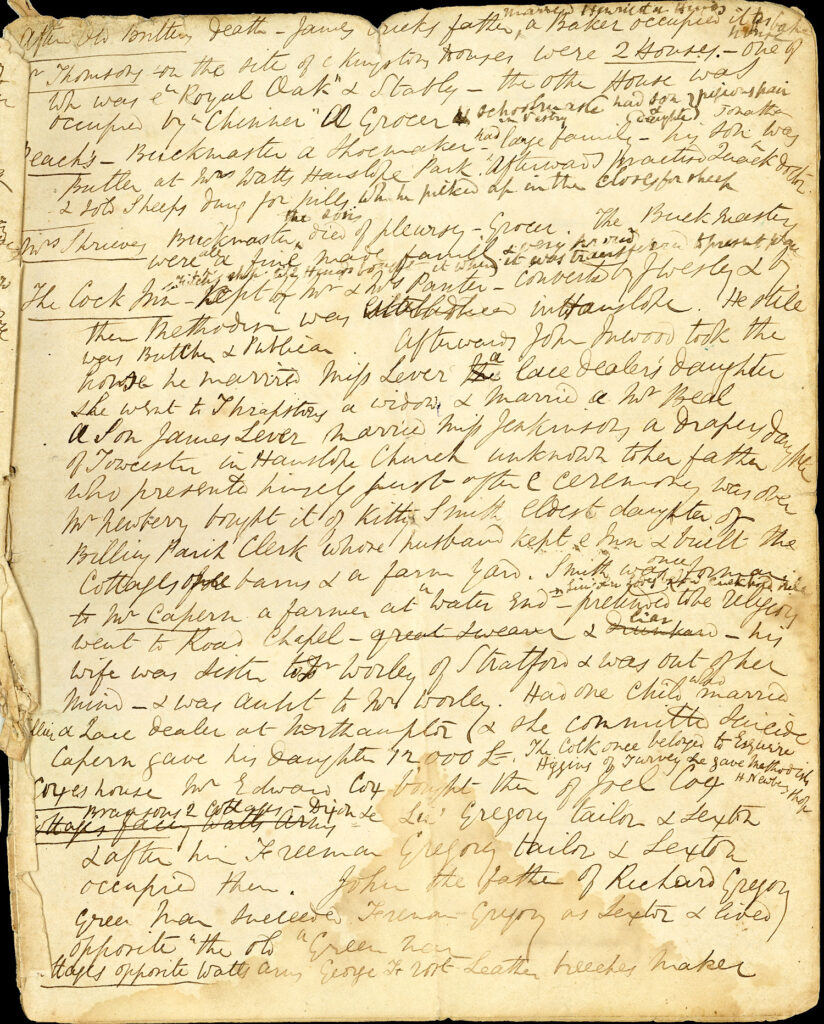 married Henrietta Hinds
After Old Brittens Death - James Bricks father, a Baker occupied it
Mr Thomsons on the site of c Kingston Houses were 2 Houses. - One of
wh was e "Royal Oak" & Stables - the other House was
occupied by "Chenner" A Grocer & schoolmaster had son & daughter Jonathan
in vestry
Peach's - Buckmaster a Shoemaker - had large family - his son was
Butler at Mrs Watts Hanslope Park "Afterwards practised Quack Doctor
& sold Sheeps dung for pills wh he picked up in the closes for sheep
the son
Mrs Shrieves Buckmaster, died of pleursy - Grocer. The Buckmasters
were a fine made family & very proud
it was transferred to present place
The Cock Inn - Kept by Mr & Mrs Panter - converted by J Wesley & by
then Methodism was established in Hanslope. He still
was Butcher & Publican. Afterwards John Inwood took the
house he married Miss Lever the a lace dealer's daughter
She went to Thrapstons a widow & married a Mr Beal
A Son James Lever married Miss Jenkinsons a drapers daughter
of Towcester in Hanslope Church unknown to her father
who presents himself just after e ceremony was over
Mr Newberry bought it of Kitty Smith eldest daughter of
Billing Parish Clerk whose husband kept e Inn & built the
Cottages of the barns & a farm yard. Smith was once foreman
to Mr Capern a farmer at "Water End" - pretended to be religious
went to Road Chapel - great swearer & drunkard liar - his
wife was Sister to Dr Worley of Stratford & was out of her
mind - & was aunt to Mr Worley. Had one child who married
a Lace dealer at Northampton (& she committed Suicide
Capern gave his daughter 12000 £ - The Cock once belonged to Esquire
Higgins of Turvey he gave Methodists
H Newberys shop
Coxes house Mr Edward Cox bought then of Joel Cox
Bransons 2 Cottages - Dixon &
Cottages facing Watts Arms Gregory tailor & Sexton
& after him Freeman Gregory tailor & Sexton
occupied them. John the father of Richard Gregory
Green Man succeeded Freeman Gregory as Sexton & lived
opposite "the old "Green Man
ttages opposite Watts Arms George Frost Leather breeches Maker